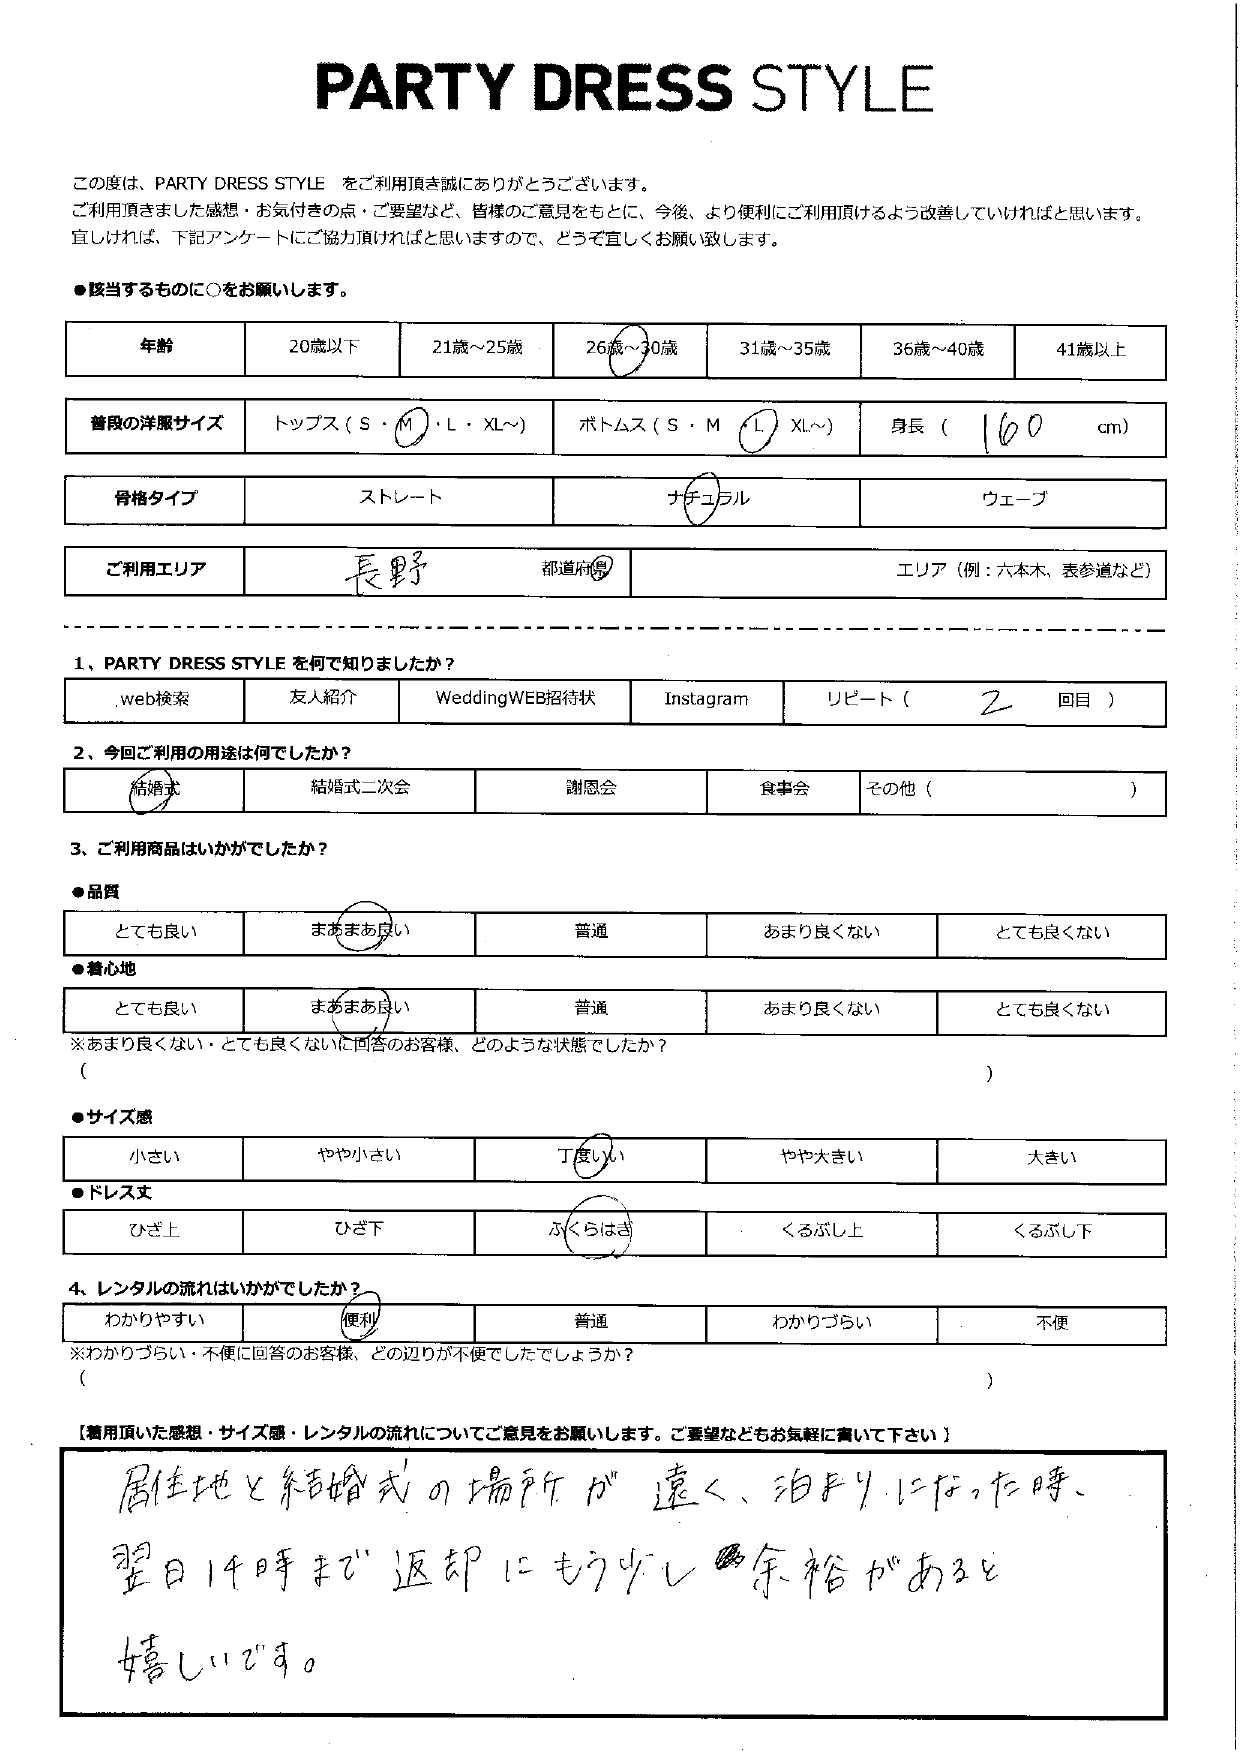 PARTY DRESS STYLE
この度は、PARTY DRESS STYLE をご利用頂き誠にありがとうございます。
ご利用頂きました感想・お気付きの点・ご要望など、皆様のご意見をもとに、今後、より便利にご利用頂けるよう改善していければと思います。
宜しければ、下記アンケートにご協力頂ければと思いますので、どうぞ宜しくお願い致します。
●該当するものに○をお願いします。
年齢 20歳以下 21歳～25歳 26歳～30歳 31歳～35歳 36歳～40歳 41歳以上
普段の洋服サイズ トップス ( S ・ M ・ L ・ XL～) ボトムス ( S ・ M ・ L XL～) 身長 ( 160 cm)
骨格タイプ ストレート ナチュラル ウェーブ
ご利用エリア 長野 都道府県 エリア（例：六本木、表参道など）
1、PARTY DRESS STYLE を何で知りましたか？
web検索 友人紹介 WeddingWEB招待状 Instagram リピート（ 2 回目 ）
2、今回ご利用の用途は何でしたか？
結婚式 結婚式二次会 謝恩会 食事会 その他（ ）
3、ご利用商品はいかがでしたか？
●品質
とても良い まあまあ良い 普通 あまり良くない とても良くない
●着心地
とても良い まあまあ良い 普通 あまり良くない とても良くない
※あまり良くない・とても良くないに回答のお客様、どのような状態でしたか？
( )
●サイズ感
小さい やや小さい 丁度いい やや大きい 大きい
●ドレス丈
ひざ上 ひざ下 ふくらはぎ くるぶし上 くるぶし下
4、レンタルの流れはいかがでしたか？
わかりやすい 便利 普通 わかりづらい 不便
※わかりづらい・不便に回答のお客様、どの辺りが不便でしたでしょうか？
( )
【着用頂いた感想・サイズ感・レンタルの流れについてご意見をお願いします。ご要望などもお気軽に書いて下さい】
居住地と結婚式の場所が遠く、泊まりになった時、
翌日14時まで返却にもう少し余裕があると
嬉しいです。